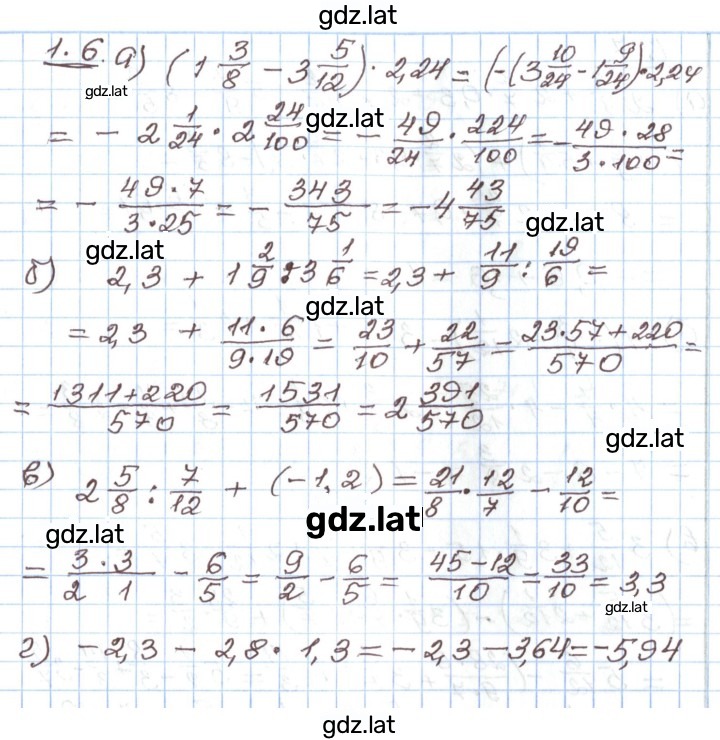 gdz.lat
1.6. а) (1 3/8 − 3 5/12) · 2,24 = (−(3 10/24 − 1 9/24)) · 2,24
gdz.lat
= − 2 1/24 · 2 24/100 = − 49/24 · 224/100 = − 49 · 28/3 · 100 =
gdz.lat
= − 49 · 7/3 · 25 = − 343/75 = −4 43/75
gdz.lat
gdz.lat
б) 2,3 + 1 2/9 : 3 1/6 = 2,3 + 11/9 : 19/6 =
gdz.lat
= 2,3 + 11 · 6/9 · 19 = 23/10 + 22/57 = 23·57+220/570 =
= 1311+220/570 = 1531/570 = 2 391/570
gdz.lat
в) 2 5/8 : 7/12 + (−1,2) = 21/8 · 12/7 − 12/10 =
gdz.lat
gdz.lat
= 3 · 3/2 1 − 6/5 = 9/2 − 6/5 = 45−12/10 = 33/10 = 3,3
gdz.lat
г) −2,3 − 2,8 · 1,3 = −2,3 − 3,64 = −5,94
gdz.lat